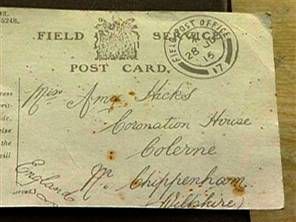 5248.
FIELD SERVICE
POST CARD.
FIELD POST OFFICE
28 JU
15
17
Miss Amy Hicks
Coronation House
Colerne
Nr. Chippenham
(Wiltshire)
England